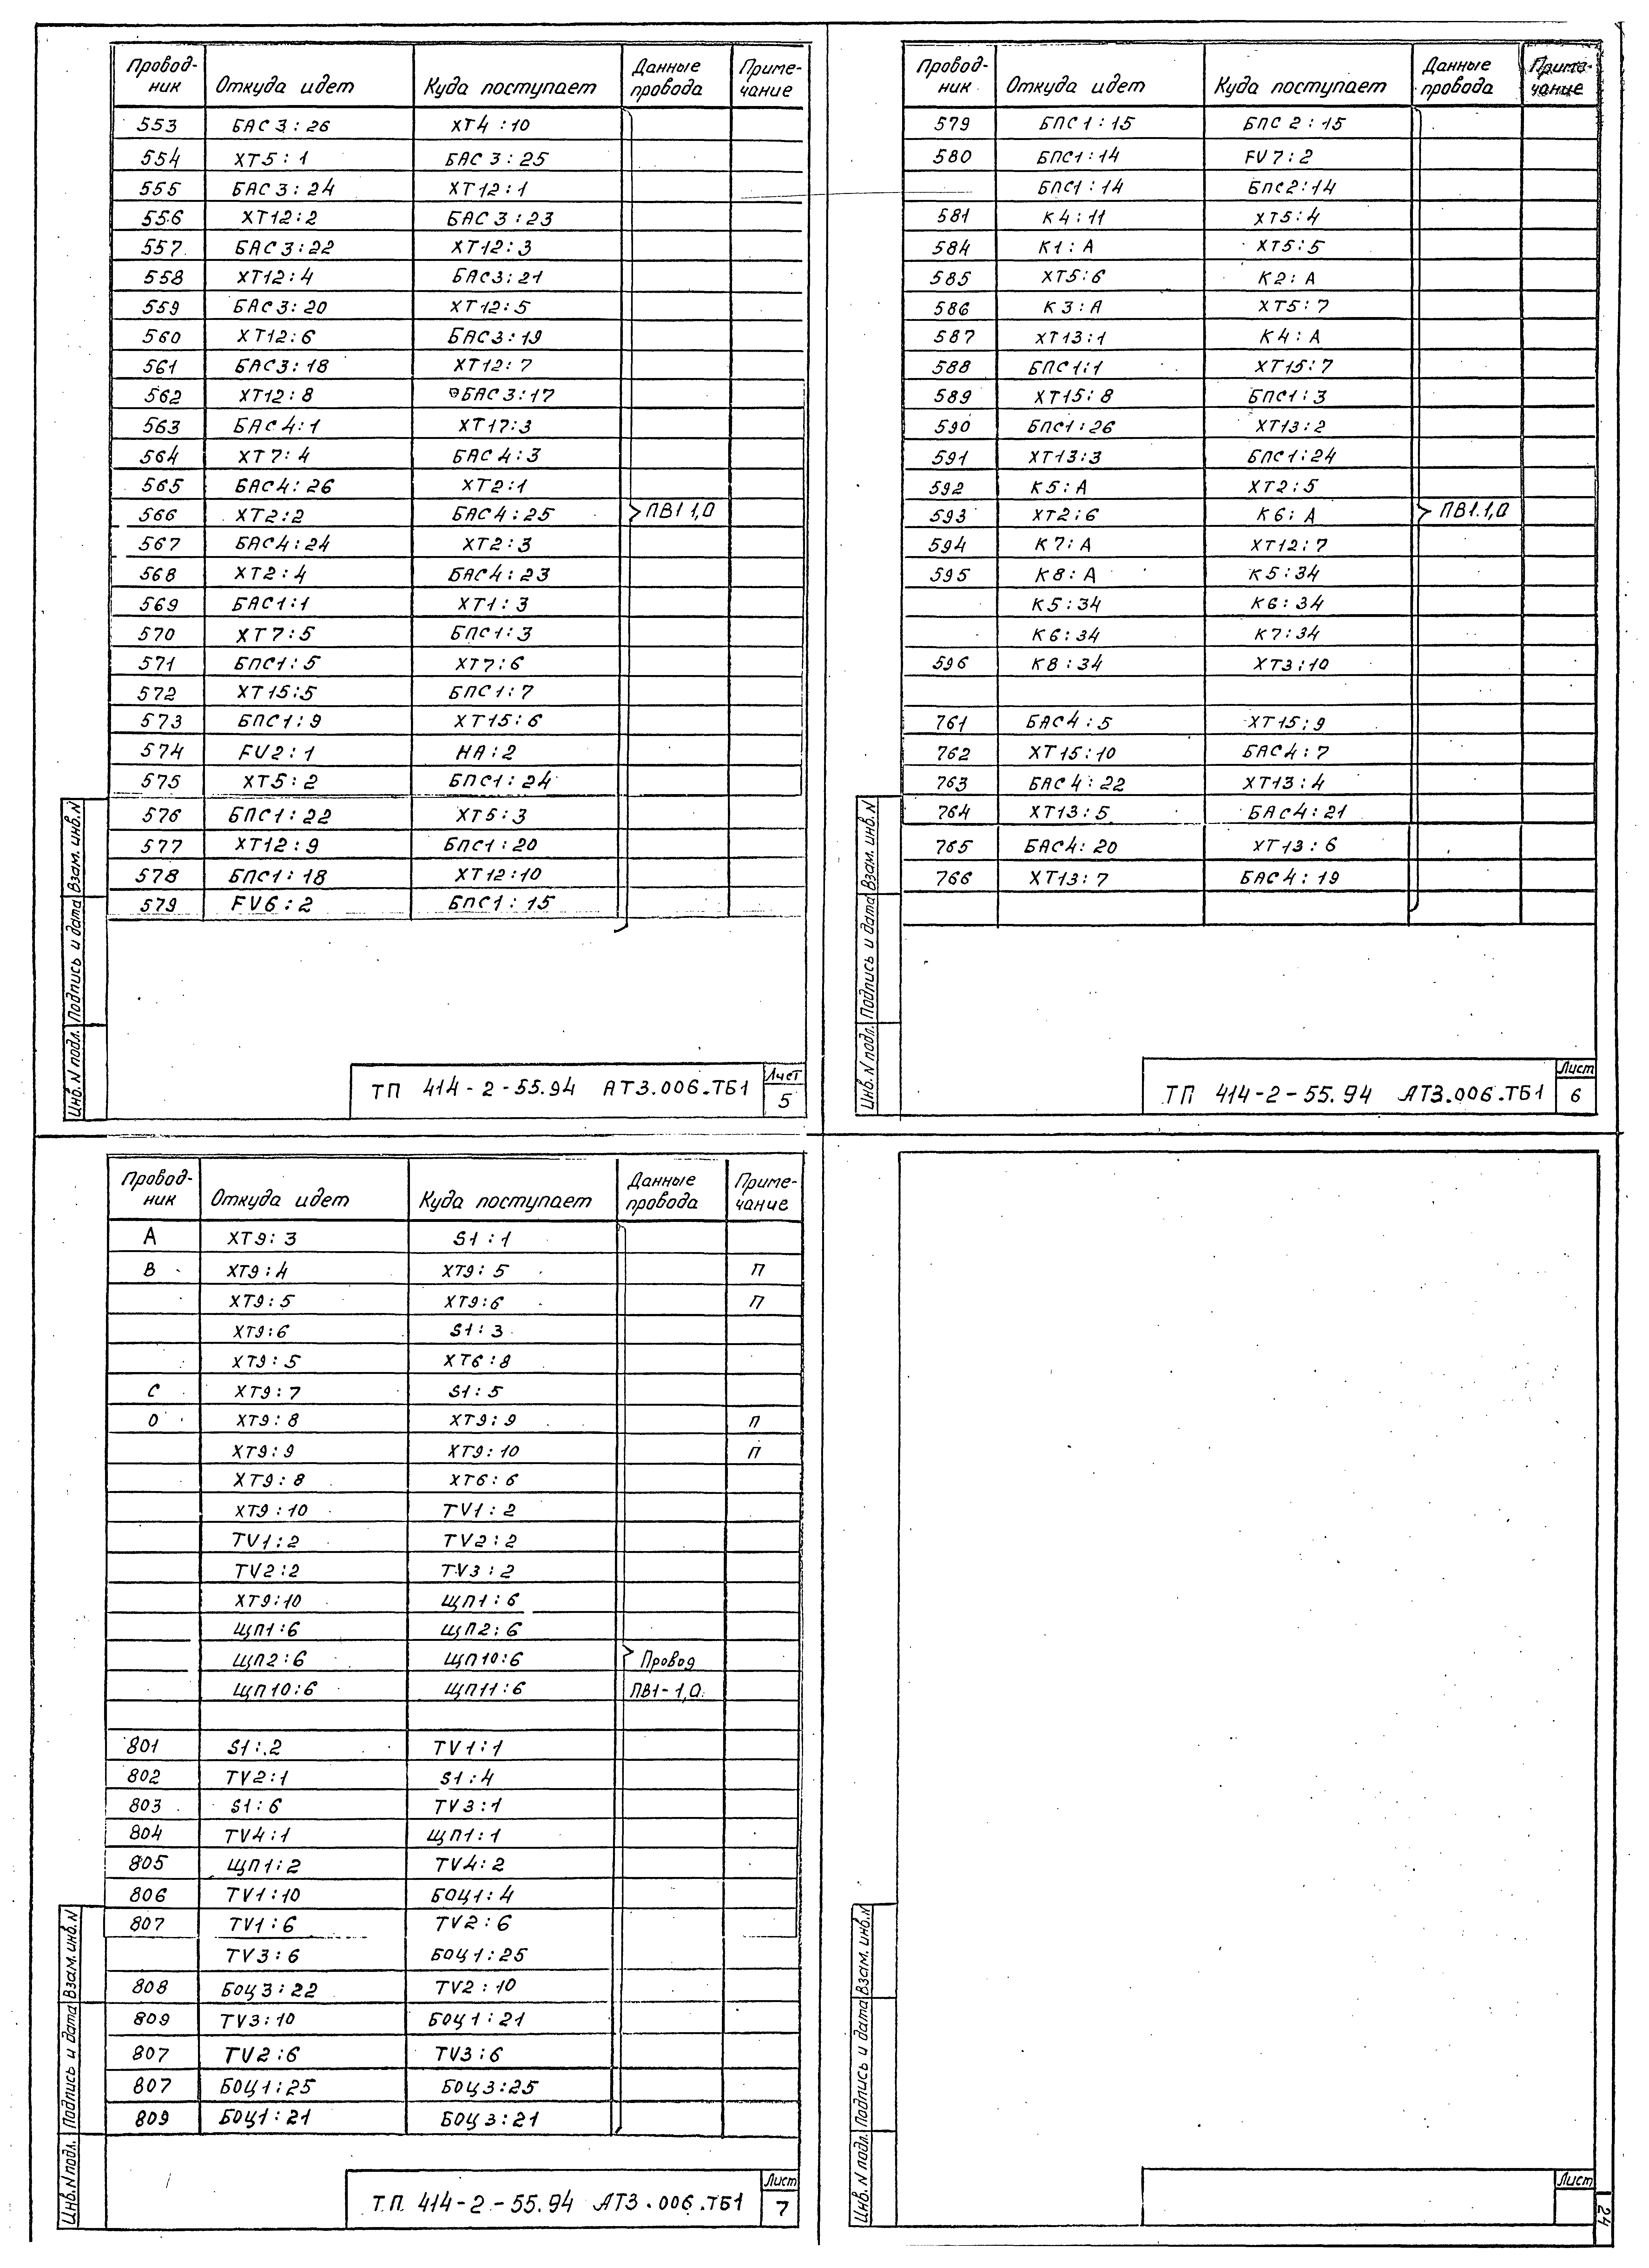 Провод- Откуда идет Куда поступает Данные Приме-
ник провода чание
553 БАС3:26 ХТ4:10
554 ХТ5:1 БАС3:25
555 БАС3:24 ХТ12:1
556 ХТ12:2 БАС3:23
557 БАС3:22 ХТ12:3
558 ХТ12:4 БАС3:21
559 БАС3:20 ХТ12:5
560 ХТ12:6 БАС3:19
561 БАС3:18 ХТ12:7
562 ХТ12:8 БАС3:17
563 БАС4:1 ХТ17:3
564 ХТ7:4 БАС4:3
565 БАС4:26 ХТ2:1
566 ХТ2:2 БАС4:25 ПВ1 1,0
567 БАС4:24 ХТ2:3
568 ХТ2:4 БАС4:23
569 БАС1:1 ХТ1:3
570 ХТ7:5 БПС1:3
571 БПС1:5 ХТ7:6
572 ХТ15:5 БПС1:7
573 БПС1:9 ХТ15:6
574 FV2:1 НА:2
575 ХТ5:2 БПС1:24
576 БПС1:22 ХТ5:3
577 ХТ12:9 БПС1:20
578 БПС1:18 ХТ12:10
579 FV6:2 БПС1:15
Инв.N подл. Подпись и дата Взам. инв.N
ТП 414-2-55.94 АТ3.006.ТБ1 Лист
5
Провод- Откуда идет Куда поступает Данные Приме-
ник провода чание
579 БПС1:15 БПС2:15
580 БПС1:14 FV7:2
БПС1:14 БПС2:14
581 К4:11 ХТ5:4
584 К1:А ХТ5:5
585 ХТ5:6 К2:А
586 К3:А ХТ5:7
587 ХТ13:1 К4:А
588 БПС1:1 ХТ15:7
589 ХТ15:8 БПС1:3
590 БПС1:26 ХТ13:2
591 ХТ13:3 БПС1:24
592 К5:А ХТ2:5
593 ХТ2:6 К6:А ПВ1.1,0
594 К7:А ХТ12:7
595 К8:А К5:34
К5:34 К6:34
К6:34 К7:34
596 К8:34 ХТ3:10
761 БАС4:5 ХТ15:9
762 ХТ15:10 БАС4:7
763 БАС4:22 ХТ13:4
764 ХТ13:5 БАС4:21
765 БАС4:20 ХТ13:6
766 ХТ13:7 БАС4:19
Инв.N подл. Подпись и дата Взам. инв.N
ТП 414-2-55.94 АТ3.006.ТБ1 Лист
6
Провод- Откуда идет Куда поступает Данные Приме-
ник провода чание
А ХТ9:3 S1:1
В ХТ9:4 ХТ9:5 П
ХТ9:5 ХТ9:6 П
ХТ9:6 S1:3
ХТ9:5 ХТ6:8
С ХТ9:7 S1:5
0 ХТ9:8 ХТ9:9 П
ХТ9:9 ХТ9:10 П
ХТ9:8 ХТ6:6
ХТ9:10 TV1:2
TV1:2 TV2:2
TV2:2 TV3:2
ХТ9:10 ЩП1:6
ЩП1:6 ЩП2:6
ЩП2:6 ЩП10:6 Провод
ЩП10:6 ЩП11:6 ПВ1-1,0
801 S1:2 TV1:1
802 TV2:1 S1:4
803 S1:6 TV3:1
804 TV4:1 ЩП1:1
805 ЩП1:2 TV4:2
806 TV1:10 БОЦ1:4
807 TV1:6 TV2:6
TV3:6 БОЦ1:25
808 БОЦ3:22 TV2:10
809 TV3:10 БОЦ1:21
807 TV2:6 TV3:6
807 БОЦ1:25 БОЦ3:25
809 БОЦ1:21 БОЦ3:21
Инв.N подл. Подпись и дата Взам. инв.N
Т.П. 414-2-55.94 АТ3.006.ТБ1 Лист
7
Инв.N подл. Подпись и дата Взам. инв.N
Лист
24